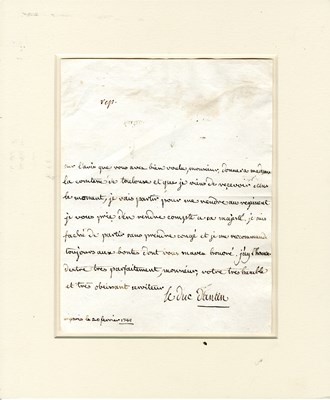 rep.
sur l'avis que vous aves bien voulu, monsieur, donner a madame
la comtesse de toulouse et que je viens de recevoir dans
le moment, je vais partir pour me rendre au regiment
je vous prie d'en rendre compte a sa majesté. je suis
faché de partir sans prendre congé et je me recommande
toujours aux bontés dont vous m'avez honoré. j'ay l'honneur
d'estre tres parfaitement, monsieur, votre tres humble
et tres obeissant serviteur
le duc d'antin
a paris le 20 fevrier